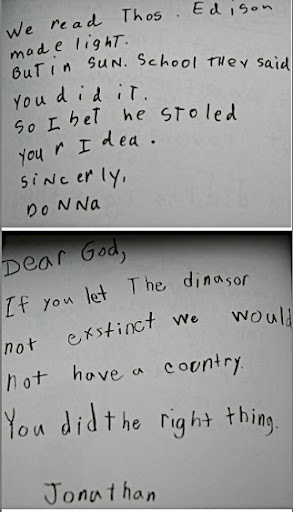 We read Thos. Edison
made light.
But in SUN. School THey said
you did iT.
So I bet he sToled
you r I dea.
siNcerly,
DoNNa
Dear God,
If you let The dinasor
not exstinct we would
not have a country.
You did the right thing.
Jonathan